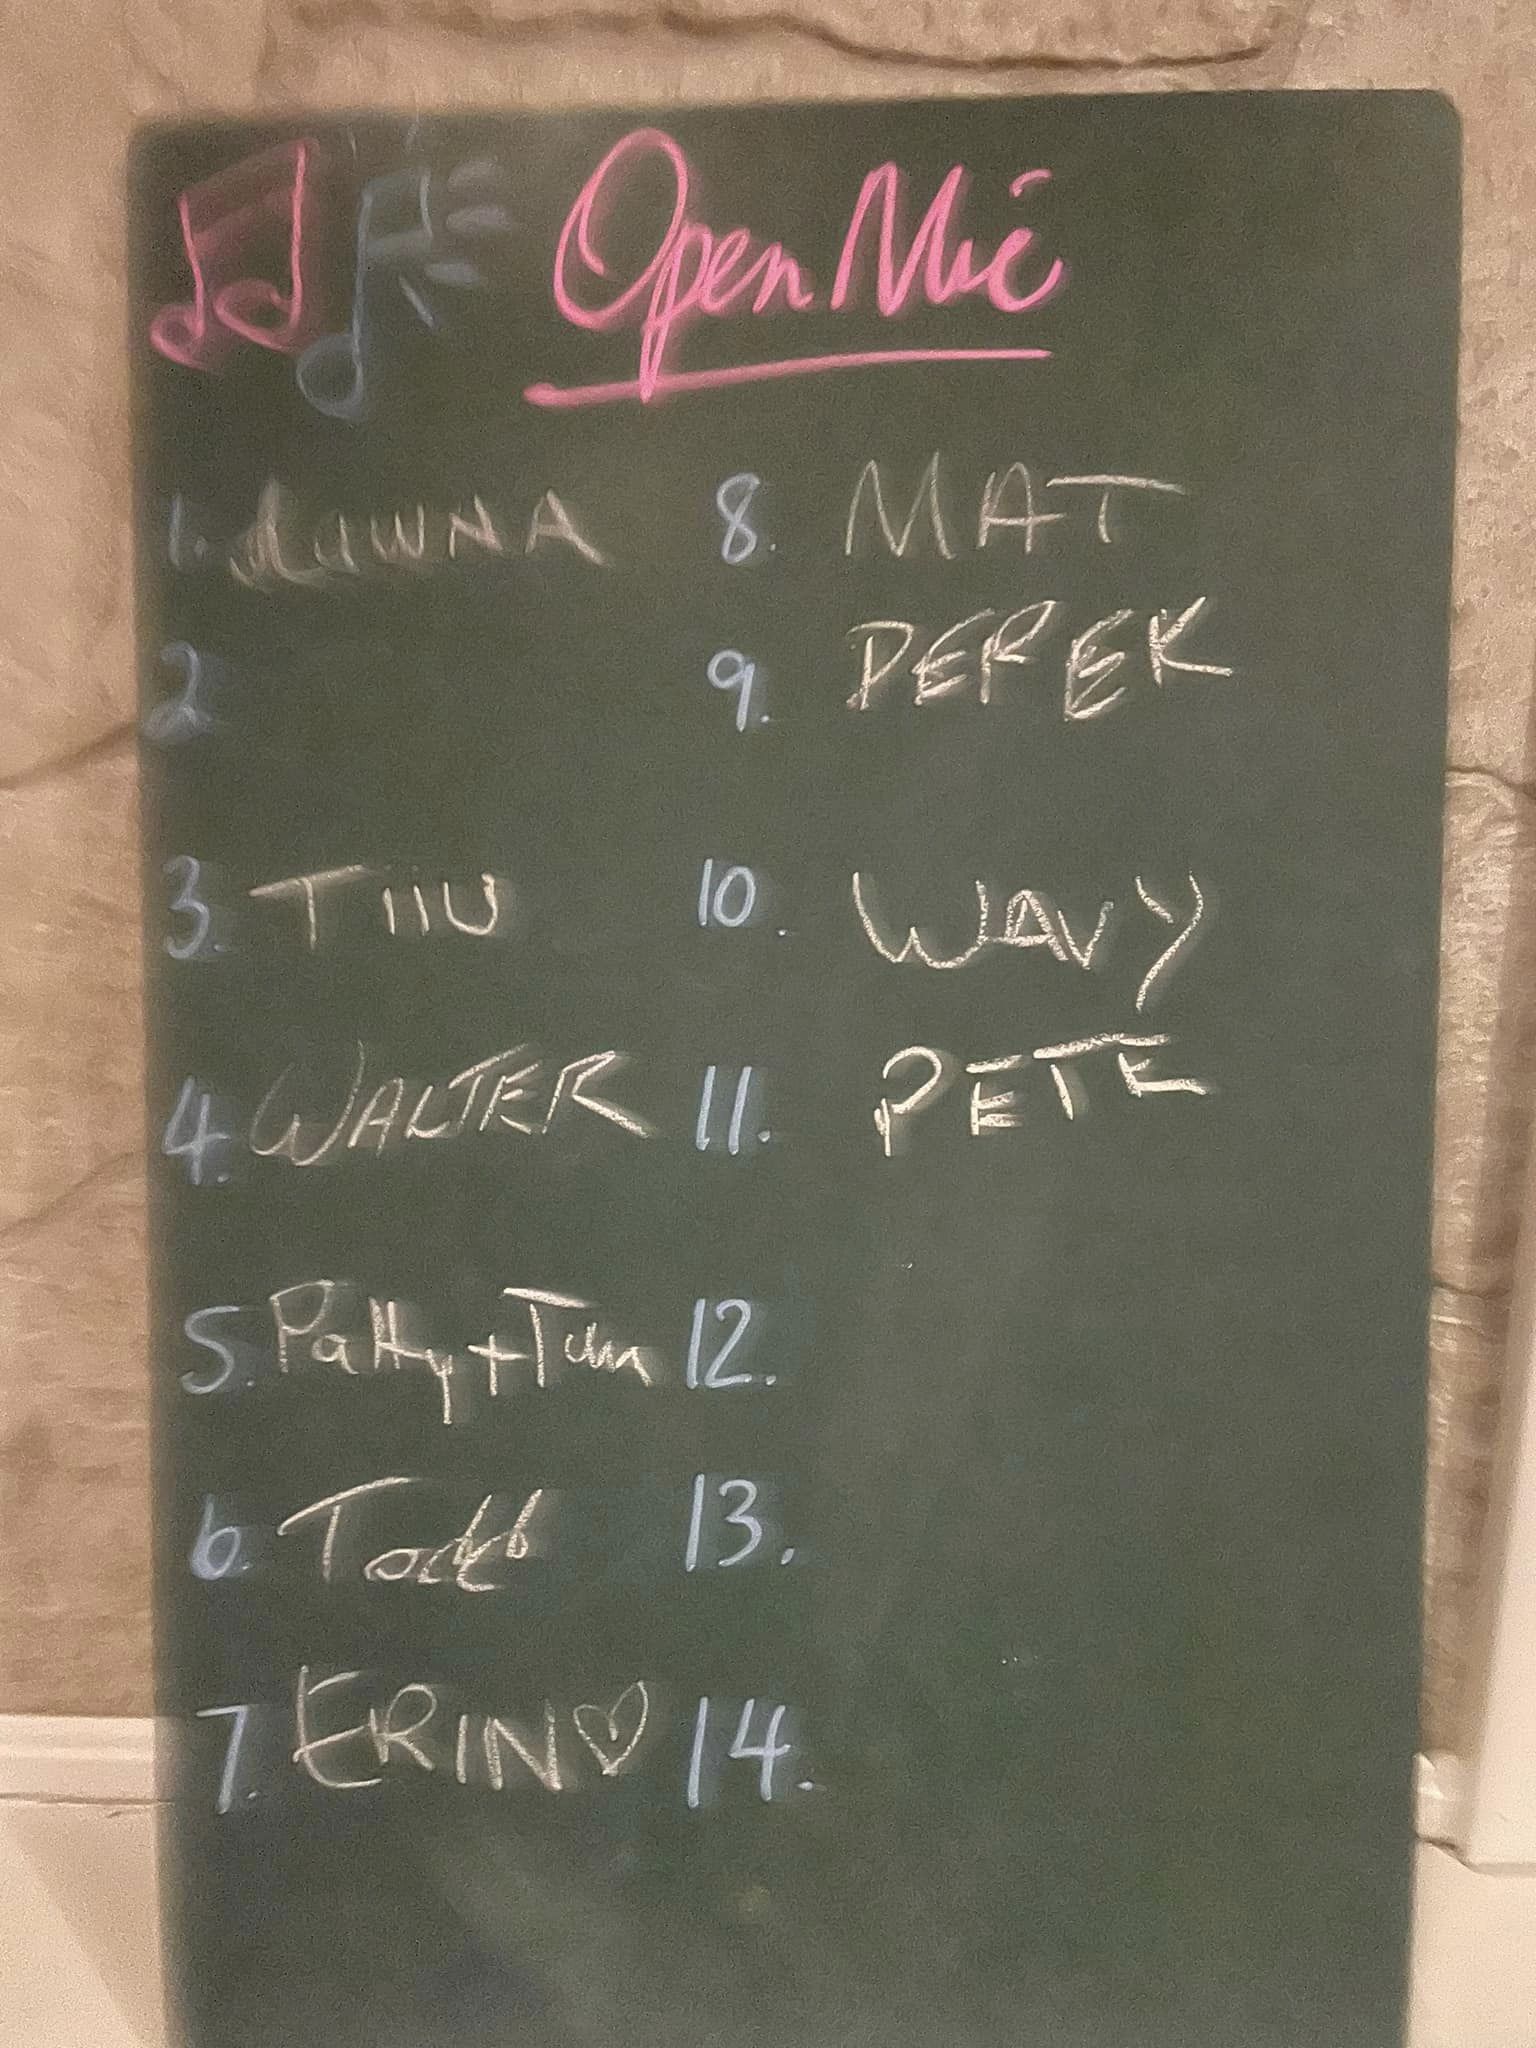 Open Mic
1.
2
3. Tiiu
4. WALTER
5. Patty + Tim
6. Todd
7. ERIN♡
8. MAT
9. DEREK
10. WAVY
11. PETE
12.
13.
14.